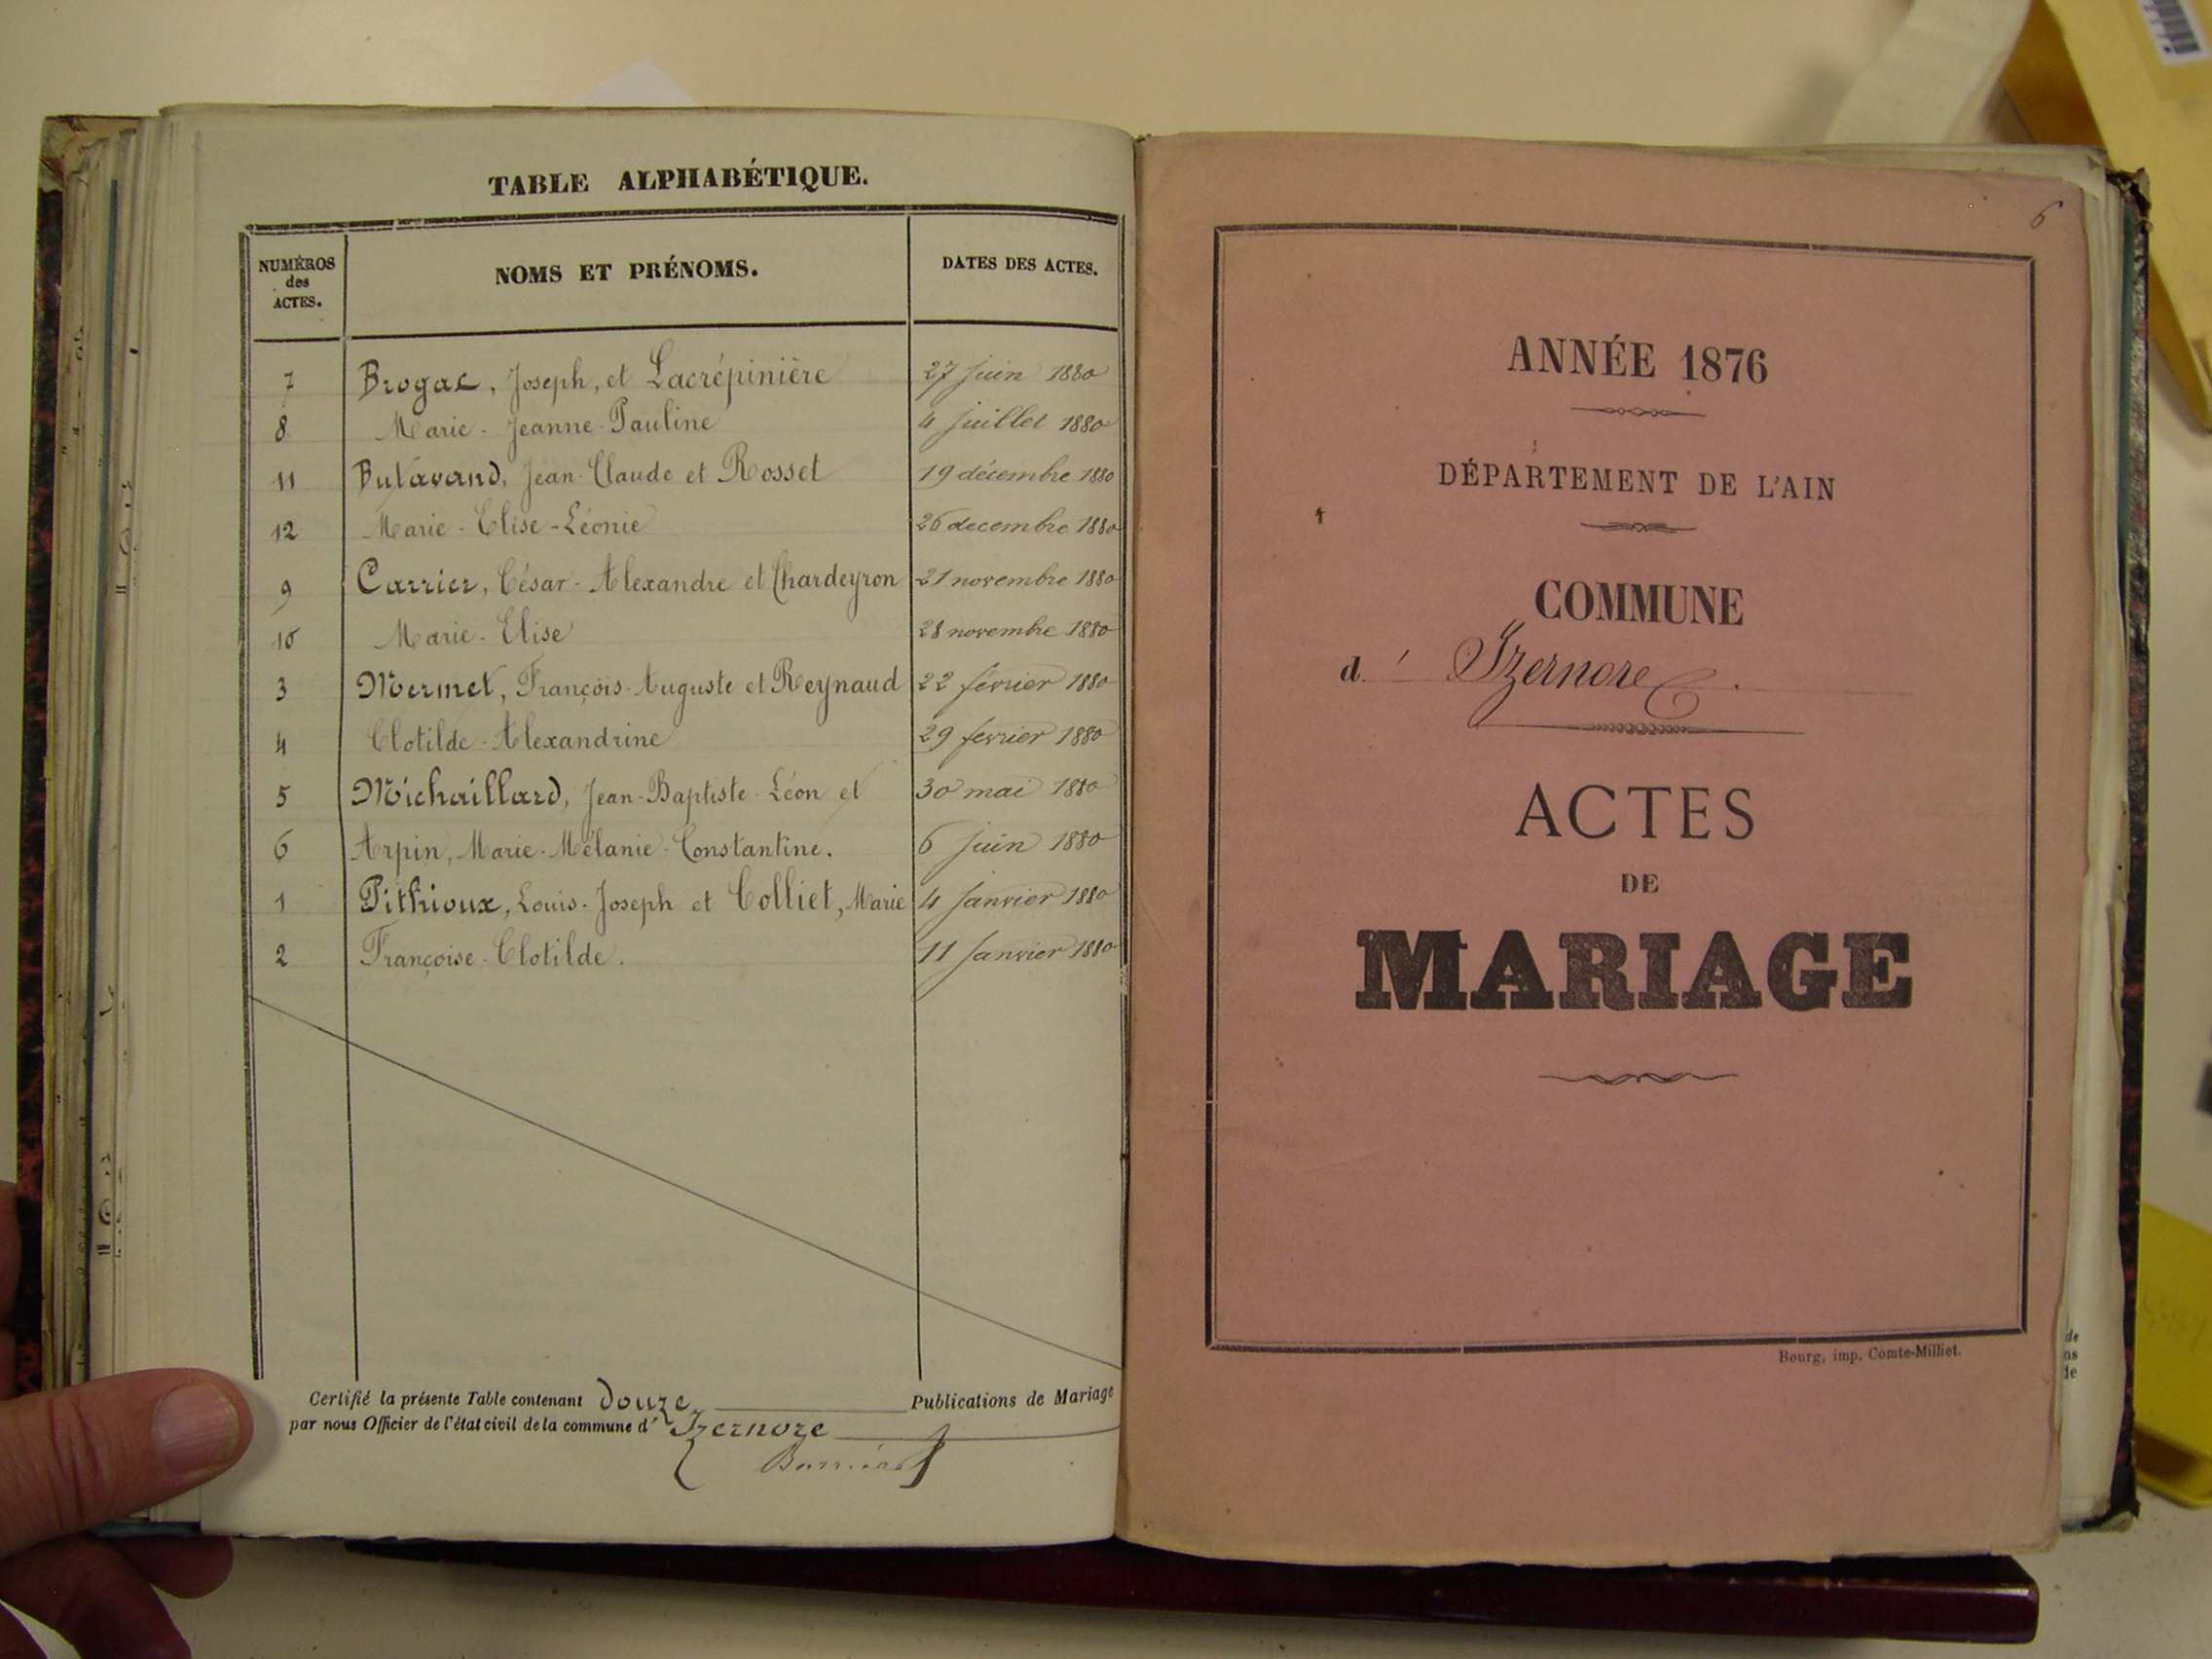 TABLE ALPHABÉTIQUE.
NUMÉROS des ACTES. NOMS ET PRÉNOMS. DATES DES ACTES.
7 Brogac, Joseph, et Lacrépinière 27 juin 1880
8 Marie-Jeanne-Pauline 4 juillet 1880
11 Butavand, Jean-Claude et Rosset 19 décembre 1880
12 Marie-Elise-Léonie 26 decembre 1880
9 Carrier, César-Alexandre et Chardeyron 21 novembre 1880
10 Marie-Elise 28 novembre 1880
3 Mermet, François-Auguste et Reynaud 22 février 1880
4 Clotilde-Alexandrine 29 fevrier 1880
5 Michaillard, Jean-Baptiste-Léon et 30 mai 1880
6 Arpin, Marie-Mélanie-Constantine. 6 juin 1880
1 Pithioux, Louis-Joseph et Colliet, Marie 4 janvier 1880
2 Françoise-Clotilde. 11 janvier 1880
Certifié la présente Table contenant douze Publications de Mariage
par nous Officier de l'état civil de la commune d' Izernore
6
ANNÉE 1876
DÉPARTEMENT DE L'AIN
COMMUNE
d' Izernore.
ACTES
DE
MARIAGE
Bourg, imp. Comte-Milliet.
de
ns
de